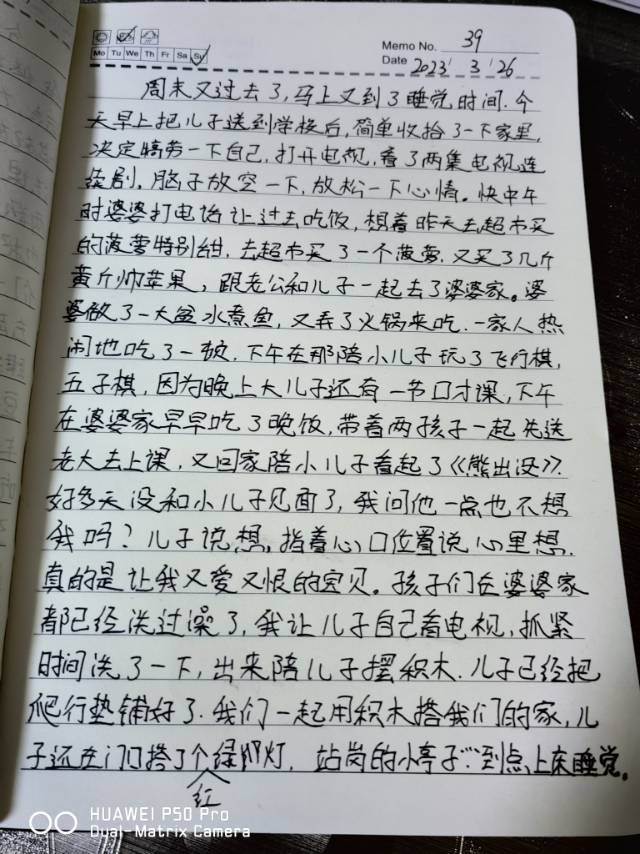 Memo No. 39
Mo Tu We Th Fr Sa Su
Date 2023 3 26
周末又过去了,马上又到了睡觉时间.今
天早上把儿子送到学校后,简单收拾了一下家里,
决定犒劳一下自己,打开电视,看了两集电视连
续剧,脑子放空一下,放松一下心情。快中午
时婆婆打电话让过去吃饭,想着昨天去超市买
的菠萝特别甜,去超市买了一个菠萝,又买了几斤
黄斤帅苹果,跟老公和儿子一起去了婆婆家。婆
婆做了一大盆水煮鱼,又弄了火锅来吃.一家人热
闹地吃了一顿.下午在那陪小儿子玩了飞行棋,
五子棋,因为晚上大儿子还有一节口才课,下午
在婆婆家早早吃了晚饭,带着两孩子一起先送
老大去上课,又回家陪小儿子看起了《熊出没》.
好多天没和小儿子见面了,我问他一点也不想
我吗?儿子说想,指着心口位置说心里想.
真的是让我又爱又恨的宝贝。孩子们在婆婆家
都已经洗过澡了,我让儿子自己看电视,抓紧
时间洗了一下,出来陪儿子摆积木.儿子已经把
爬行垫铺好了.我们一起用积木搭我们的家,儿
子还在门口搭了个绿灯,站岗的小亭子…到点上床睡觉。
红
HUAWEI P50 Pro
Dual-Matrix Camera